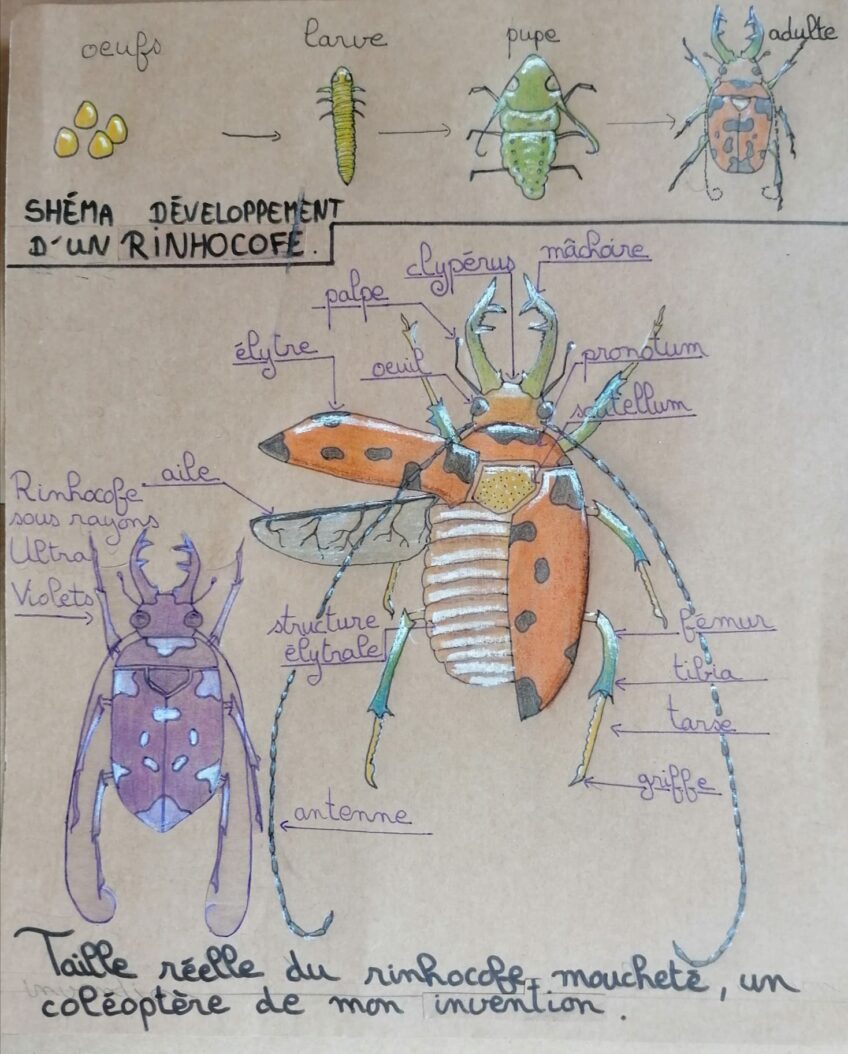 oeufs
larve
pupe
adulte
SHÉMA DÉVELOPPEMENT
D'UN RINHOCOFE.
clypérus
mâchoire
palpe
élytre
oeuil
pronotum
scutellum
aile
Rinhocofe
sous rayons
Ultra
Violets
structure
élytrale
fémur
tibia
tarse
griffe
antenne
Taille réelle du rinhocofe moucheté, un
coléoptère de mon invention.